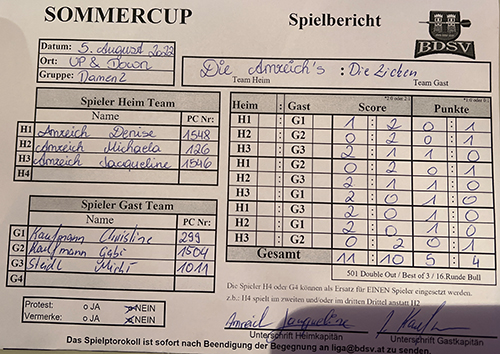 SOMMERCUP
Spielbericht
BDSV
Datum: 5. August 2022
Ort: UP & Down
Gruppe: Damen 2
Die Anreich's : Die Zicken
Team Heim Team Gast
Spieler Heim Team
Name PC Nr:
H1 Anreich Denise 1548
H2 Anreich Michaela 126
H3 Anreich Jacqueline 1546
H4
Spieler Gast Team
Name PC Nr:
G1 Kaufmann Christine 299
G2 Kaufmann Gabi 1504
G3 Steidl Michi 1011
G4
Protest: o JA NEIN
Vermerke: o JA NEIN
*2:0 oder 2:1 *1:0 oder 0:1
Heim : Gast Score Punkte
H1 : G1 1 : 2 0 : 1
H2 : G2 0 : 2 0 : 1
H3 : G3 2 : 1 1 : 0
H1 : G2 0 : 2 0 : 1
H2 : G3 2 : 1 1 : 0
H3 : G1 2 : 0 1 : 0
H1 : G3 2 : 1 1 : 0
H2 : G1 2 : 0 1 : 0
H3 : G2 0 : 2 0 : 1
Gesamt 11 : 10 5 : 4
501 Double Out / Best of 3 / 16.Runde Bull
Die Spieler H4 oder G4 können als Ersatz für EINEN Spieler eingesetzt werden.
z.b.: H4 spielt im zweiten und/oder im dritten Drittel anstatt H2
Anreich Jacqueline
Unterschrift Heimkapitän Unterschrift Gastkapitän
Das Spielptotokoll ist sofort nach Beendigung der Begegnung an liga@bdsv.at zu senden